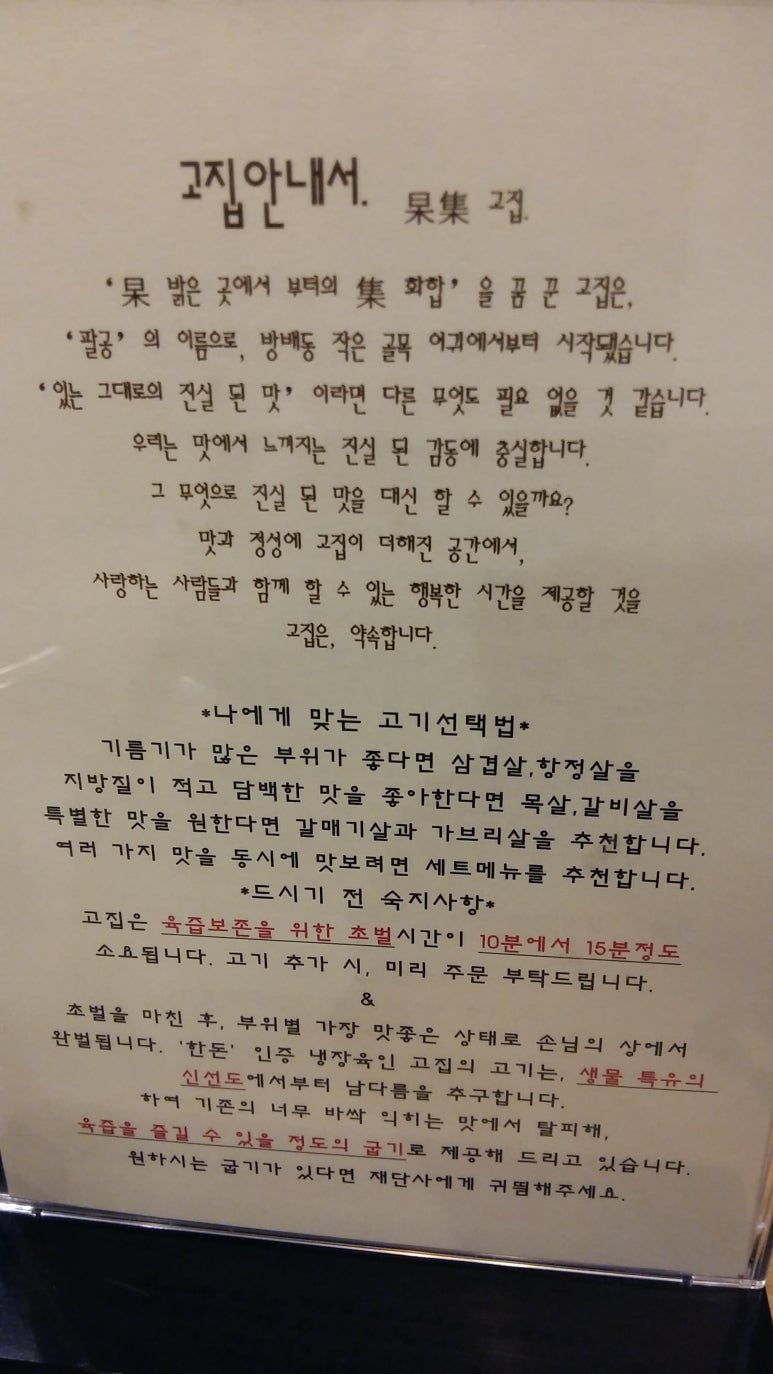 고집안내서. 杲集 고집.
‘杲 밝은 곳에서 부터의 集 화합’ 을 꿈 꾼 고집은,
‘팔공’ 의 이름으로, 방배동 작은 골목 어귀에서부터 시작됐습니다.
‘있는 그대로의 진실 된 맛’ 이라면 다른 무엇도 필요 없을 것 같습니다.
우리는 맛에서 느껴지는 진실 된 감동에 충실합니다.
그 무엇으로 진실 된 맛을 대신 할 수 있을까요?
맛과 정성에 고집이 더해진 공간에서,
사랑하는 사람들과 함께 할 수 있는 행복한 시간을 제공할 것을
고집은, 약속합니다.
*나에게 맞는 고기선택법*
기름기가 많은 부위가 좋다면 삼겹살,항정살을
지방질이 적고 담백한 맛을 좋아한다면 목살,갈비살을
특별한 맛을 원한다면 갈매기살과 가브리살을 추천합니다.
여러 가지 맛을 동시에 맛보려면 세트메뉴를 추천합니다.
*드시기 전 숙지사항*
고집은 육즙보존을 위한 초벌시간이 10분에서 15분정도
소요됩니다. 고기 추가 시, 미리 주문 부탁드립니다.
&
초벌을 마친 후, 부위별 가장 맛좋은 상태로 손님의 상에서
완벌됩니다. '한돈' 인증 냉장육인 고집의 고기는, 생물 특유의
신선도에서부터 남다름을 추구합니다.
하여 기존의 너무 바싹 익히는 맛에서 탈피해,
육즙을 즐길 수 있을 정도의 굽기로 제공해 드리고 있습니다.
원하시는 굽기가 있다면 재단사에게 귀띔해주세요.